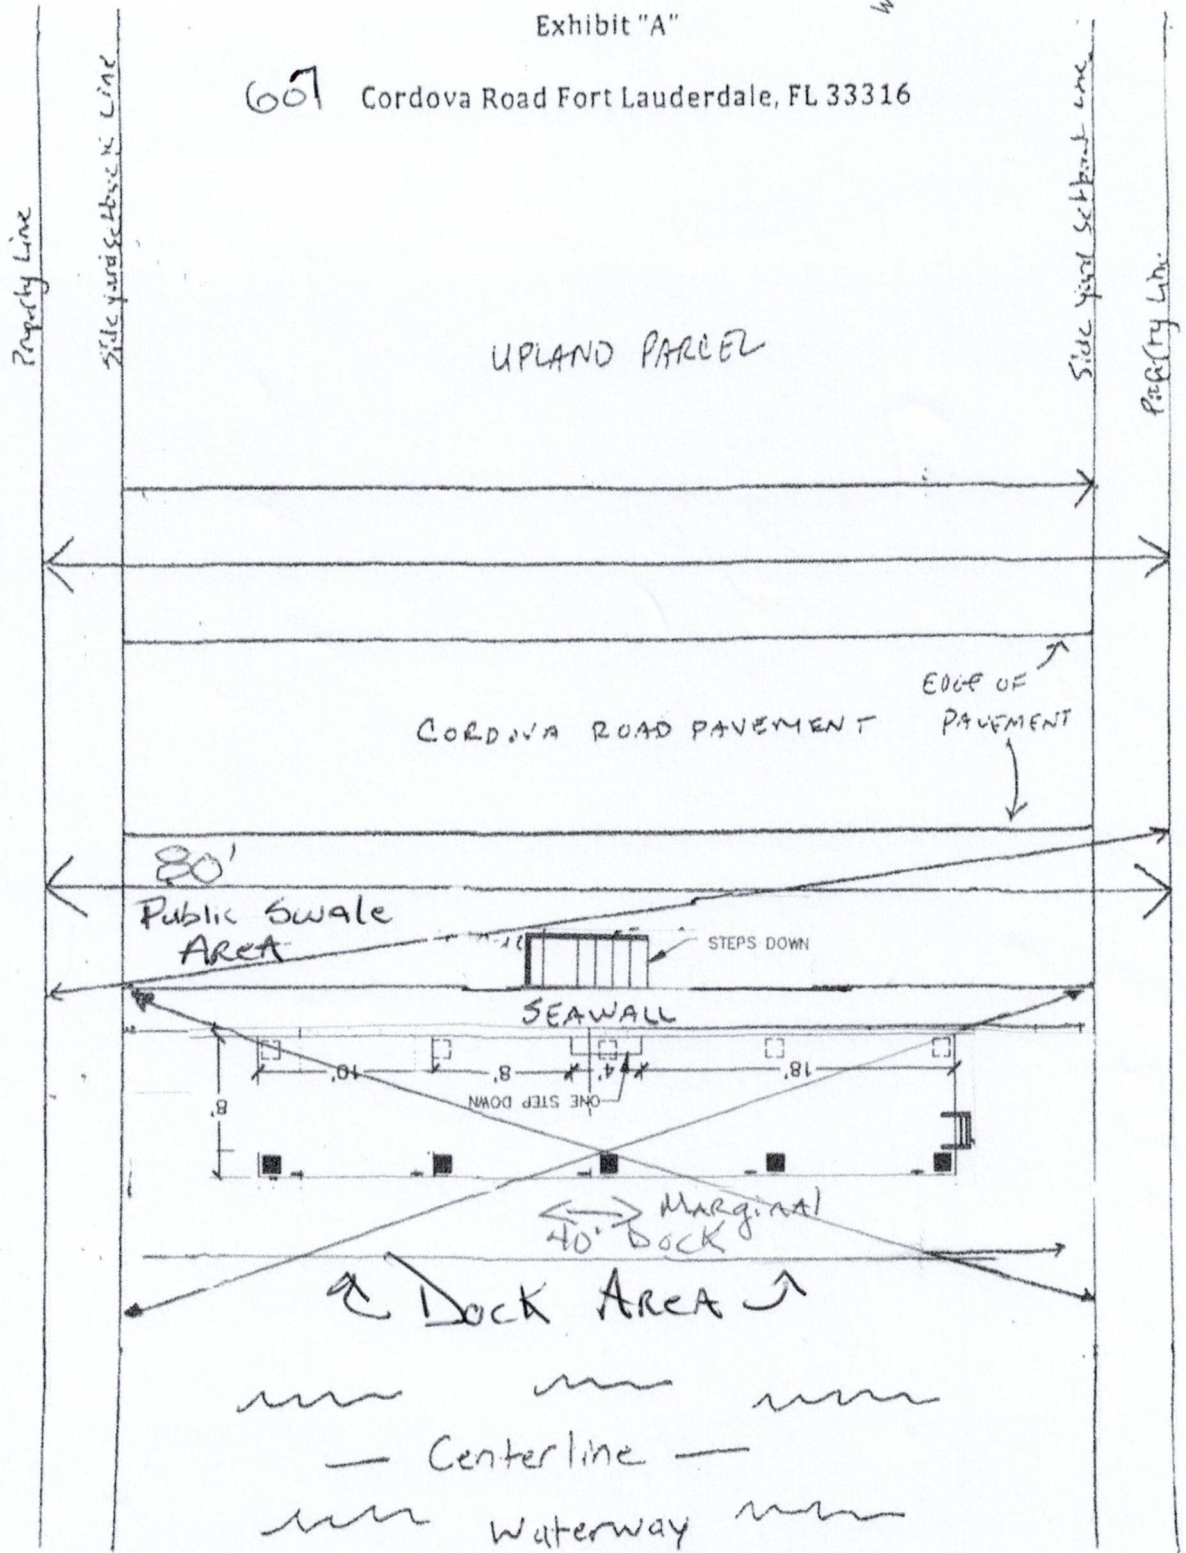 Exhibit "A"
607 Cordova Road Fort Lauderdale, FL 33316
Property Line
Side yard setback Line
Side yard setback Line
Property Line
UPLAND PARCEL
EDGE OF
PAVEMENT
CORDOVA ROAD PAVEMENT
80'
Public Swale
AREA
STEPS DOWN
SEAWALL
10'
8'
4'
18'
8'
ONE STEP DOWN
Marginal
40' Dock
Dock AREA
Centerline
Waterway